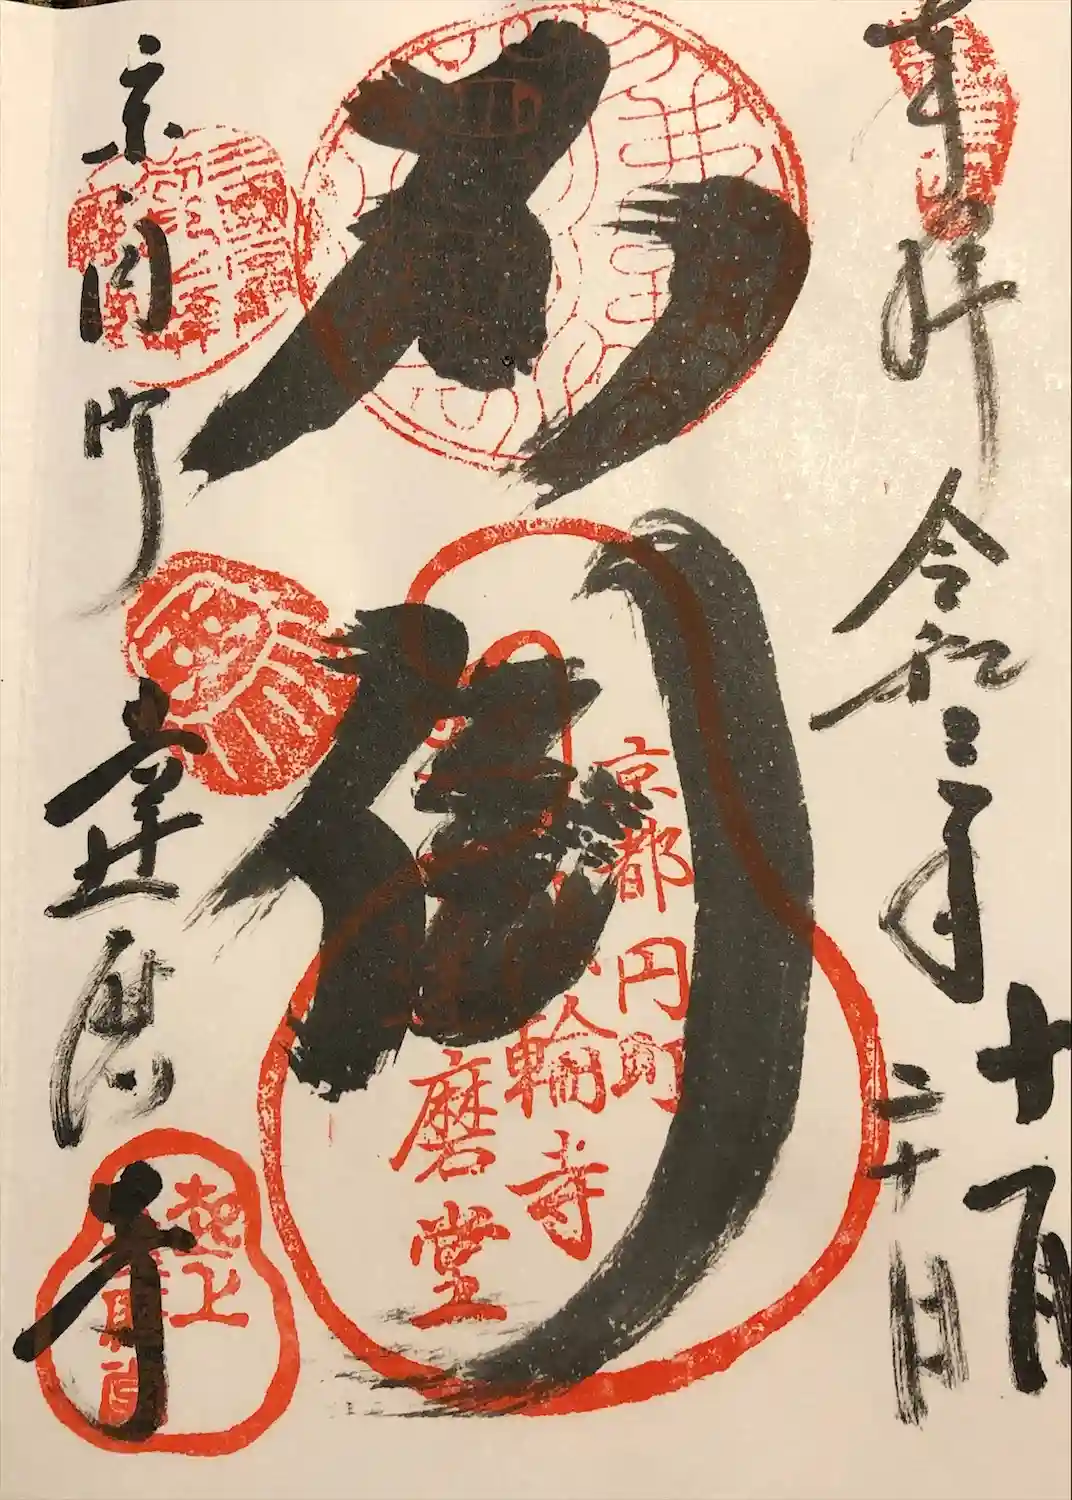 奉拝
令和三年
十月
二十日
不倒
京円町
達磨寺
京都円町
法輪寺
達磨堂
起上